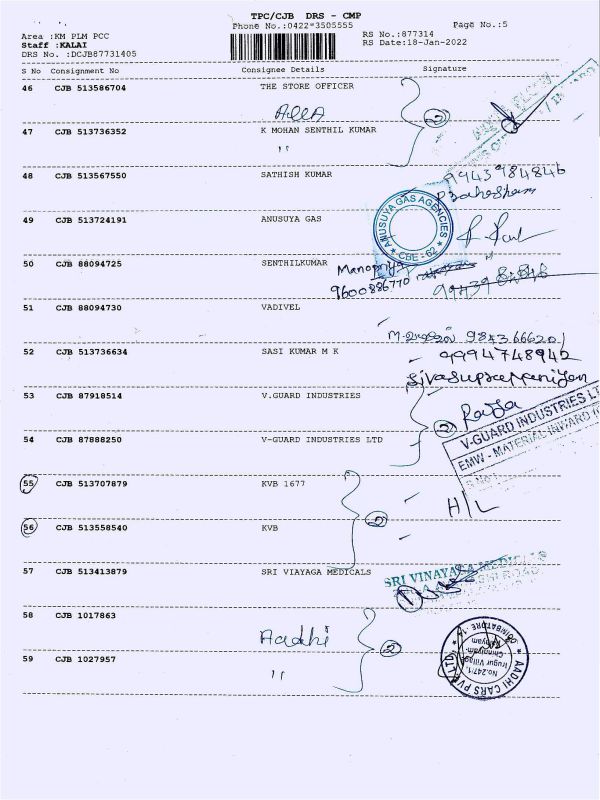 TPC/CJB DRS - CMP
Phone No.:0422*3505555
Page No.:5
Area :KM PLM PCC
RS No.:877314
Staff :KALAI
RS Date:18-Jan-2022
DRS No. :DCJB87731405
S No Consignment No Consignee Details Signature
46 CJB 513586704 THE STORE OFFICER
②
47 CJB 513736352 K MOHAN SENTHIL KUMAR
"
48 CJB 513567550 SATHISH KUMAR
9943984846
49 CJB 513724191 ANUSUYA GAS
ANUSUYA GAS AGENCIES
* CBE - 62 *
50 CJB 88094725 SENTHILKUMAR
Manopriya
9600886770
51 CJB 88094730 VADIVEL
9843666201
52 CJB 513736634 SASI KUMAR M K
9994748942
Sivasupramaniyan
53 CJB 87918514 V.GUARD INDUSTRIES
Raja
②
V-GUARD INDUSTRIES LT
EMW - MATERIAL INWARD
54 CJB 87888250 V-GUARD INDUSTRIES LTD
55 CJB 513707879 KVB 1677
H/L
②
56 CJB 513558540 KVB
57 CJB 513413879 SRI VIAYAGA MEDICALS
SRI VINAYAGA MEDICALS
58 CJB 1017863 Aadhi
②
59 CJB 1027957 "
AADHI CARS PVT LTD
COIMBATORE
No.247/1,
Irugur Village
Chinniyam-